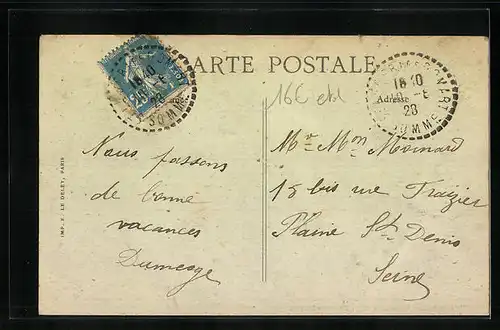 CARTE POSTALE
16€ etd
18 10
28
SOMME
18 10
-8
28
SOMME
Adresse
Nous passons
de bonne
vacances
Dumesge
Mr Mme Moinard
15 bis rue Fraizier
Plaine St Denis
Seine
IMP. E. LE DELEY, PARIS